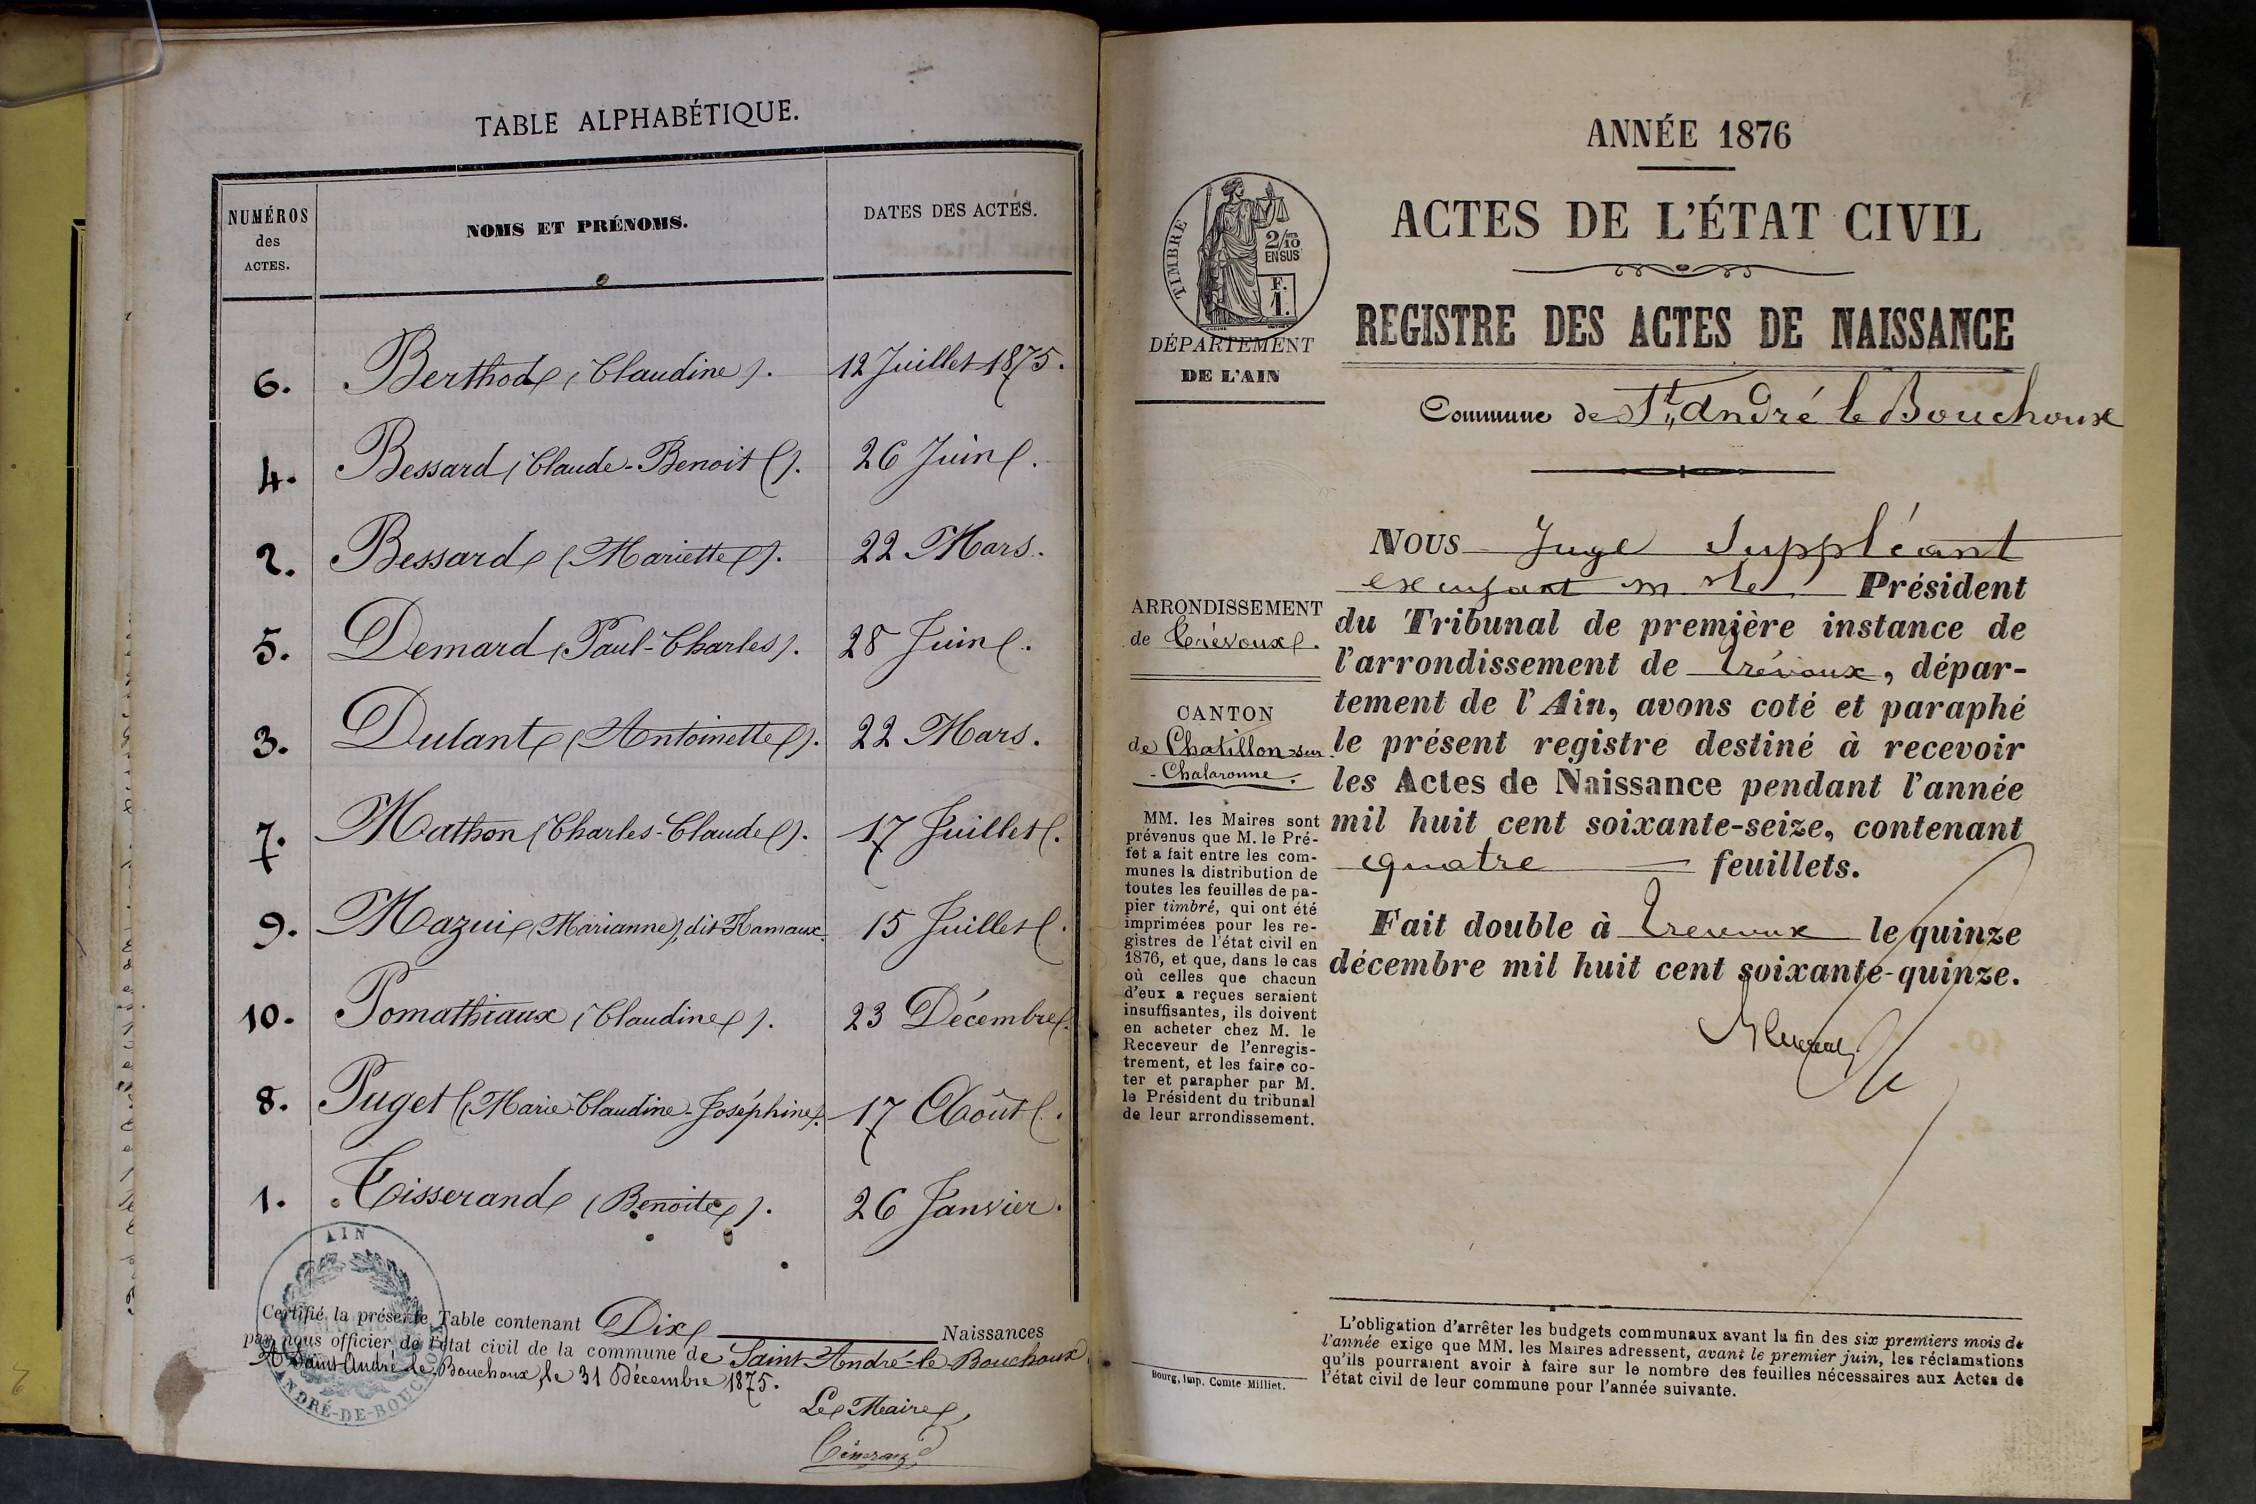 TABLE ALPHABÉTIQUE.
NUMÉROS des ACTES. NOMS ET PRÉNOMS. DATES DES ACTES.
6. Berthod (Claudine). 12 Juillet 1875.
4. Bessard (Claude-Benoit). 26 Juin.
2. Bessard (Mariette). 22 Mars.
5. Demard (Paul-Charles). 28 Juin.
3. Dulant (Antoinette). 22 Mars.
7. Mathon (Charles-Claude). 17 Juillet.
9. Mazui (Marianne), dit Ramaux. 15 Juillet.
10. Pomathiaux (Claudine). 23 Décembre.
8. Puget (Marie-Claudine-Joséphine). 17 Août.
1. Tisserand (Benoite). 26 Janvier.
AIN
ANDRÉ-DE-BOUCHOUX
Certifié la présente Table contenant Dix Naissances
par nous officier de l'état civil de la commune de Saint-André-le-Bouchoux
A Saint André le Bouchoux, le 31 Décembre 1875.
Le Maire,
ANNÉE 1876
ACTES DE L'ÉTAT CIVIL
REGISTRE DES ACTES DE NAISSANCE
Commune de St André le Bouchoux
TIMBRE
2/10
EN SUS
F.
1.
DÉPARTEMENT
DE L'AIN
ARRONDISSEMENT
de Trévoux.
CANTON
de Chatillon-sur
-Chalaronne.
MM. les Maires sont
prévenus que M. le Pré-
fet a fait entre les com-
munes la distribution de
toutes les feuilles de pa-
pier timbré, qui ont été
imprimées pour les re-
gistres de l'état civil en
1876, et que, dans le cas
où celles que chacun
d'eux a reçues seraient
insuffisantes, ils doivent
en acheter chez M. le
Receveur de l'enregis-
trement, et les faire co-
ter et parapher par M.
le Président du tribunal
de leur arrondissement.
Bourg, Imp. Comte-Milliet.
NOUS Juge Suppléant
Président
du Tribunal de première instance de
l'arrondissement de Trévoux, dépar-
tement de l'Ain, avons coté et paraphé
le présent registre destiné à recevoir
les Actes de Naissance pendant l'année
mil huit cent soixante-seize, contenant
quatre feuillets.
Fait double à Trevoux le quinze
décembre mil huit cent soixante-quinze.
L'obligation d'arrêter les budgets communaux avant la fin des six premiers mois de
l'année exige que MM. les Maires adressent, avant le premier juin, les réclamations
qu'ils pourraient avoir à faire sur le nombre des feuilles nécessaires aux Actes de
l'état civil de leur commune pour l'année suivante.